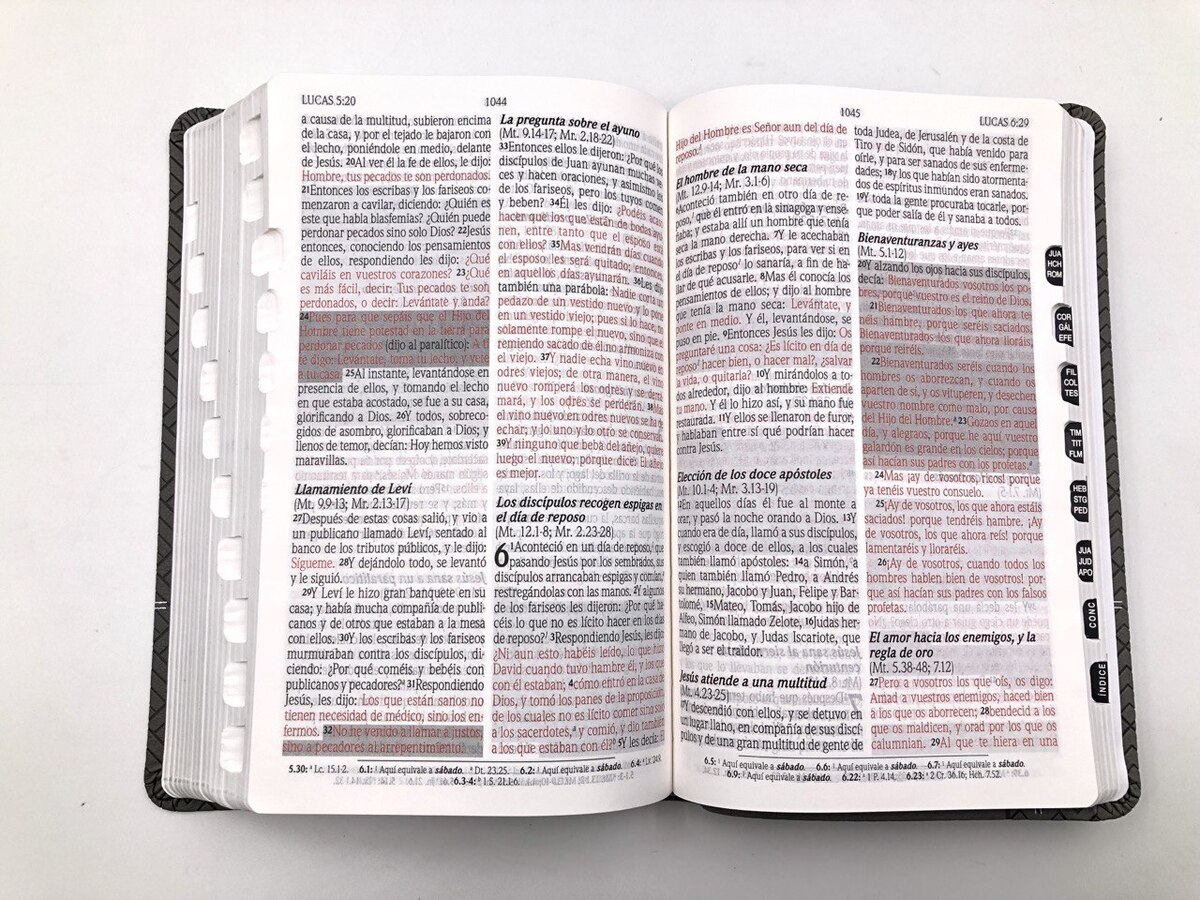 LUCAS 5:20
1044
a causa de la multitud, subieron encima
de la casa, y por el tejado le bajaron con
el lecho, poniéndole en medio, delante
de Jesús. 20Al ver él la fe de ellos, le dijo:
Hombre, tus pecados te son perdonados.
21Entonces los escribas y los fariseos co-
menzaron a cavilar, diciendo: ¿Quién es
este que habla blasfemias? ¿Quién puede
perdonar pecados sino solo Dios? 22Jesús
entonces, conociendo los pensamientos
de ellos, respondiendo les dijo: ¿Qué
caviláis en vuestros corazones? 23¿Qué
es más fácil, decir: Tus pecados te son
perdonados, o decir: Levántate y anda?
24Pues para que sepáis que el Hijo del
Hombre tiene potestad en la tierra para
perdonar pecados (dijo al paralítico): A ti
te digo: Levántate, toma tu lecho, y vete
a tu casa. 25Al instante, levantándose en
presencia de ellos, y tomando el lecho
en que estaba acostado, se fue a su casa,
glorificando a Dios. 26Y todos, sobreco-
gidos de asombro, glorificaban a Dios; y
llenos de temor, decían: Hoy hemos visto
maravillas.
Llamamiento de Leví
(Mt. 9.9-13; Mr. 2.13-17)
27Después de estas cosas salió, y vio a
un publicano llamado Leví, sentado al
banco de los tributos públicos, y le dijo:
Sígueme. 28Y dejándolo todo, se levantó
y le siguió.
29Y Leví le hizo gran banquete en su
casa; y había mucha compañía de publi-
canos y de otros que estaban a la mesa
con ellos. 30Y los escribas y los fariseos
murmuraban contra los discípulos, di-
ciendo: ¿Por qué coméis y bebéis con
publicanos y pecadores?a 31Respondiendo
Jesús, les dijo: Los que están sanos no
tienen necesidad de médico, sino los en-
fermos. 32No he venido a llamar a justos,
sino a pecadores al arrepentimiento.
La pregunta sobre el ayuno
(Mt. 9.14-17; Mr. 2.18-22)
33Entonces ellos le dijeron: ¿Por qué los
discípulos de Juan ayunan muchas ve-
ces y hacen oraciones, y asimismo los
de los fariseos, pero los tuyos comen
y beben? 34Él les dijo: ¿Podéis acaso
hacer que los que están de bodas ayu-
nen, entre tanto que el esposo está
con ellos? 35Mas vendrán días cuando
el esposo les será quitado; entonces,
en aquellos días ayunarán. 36Les dijo
también una parábola: Nadie corta un
pedazo de un vestido nuevo y lo pone
en un vestido viejo; pues si lo hace, no
solamente rompe el nuevo, sino que el
remiendo sacado de él no armoniza con
el viejo. 37Y nadie echa vino nuevo en
odres viejos; de otra manera, el vino
nuevo romperá los odres y se derra-
mará, y los odres se perderán. 38Mas
el vino nuevo en odres nuevos se ha de
echar; y lo uno y lo otro se conservan.
39Y ninguno que beba del añejo, quiere
luego el nuevo; porque dice: El añejo
es mejor.
Los discípulos recogen espigas en
el día de reposo
(Mt. 12.1-8; Mr. 2.23-28)
6 1Aconteció en un día de reposo,1 que
pasando Jesús por los sembrados, sus
discípulos arrancaban espigas y comían,
restregándolas con las manos. 2Y algunos
de los fariseos les dijeron: ¿Por qué ha-
céis lo que no es lícito hacer en los días
de reposo?1 3Respondiendo Jesús, les dijo:
¿Ni aun esto habéis leído, lo que hizo
David cuando tuvo hambre él, y los que
con él estaban; 4cómo entró en la casa de
Dios, y tomó los panes de la proposición,
de los cuales no es lícito comer sino solo
a los sacerdotes,a y comió, y dio también
a los que estaban con él? 5Y les decía: El
5.30: a Lc. 15.1-2. 6.1: 1 Aquí equivale a sábado. a Dt. 23.25. 6.2: 1 Aquí equivale a sábado. 6.4: a Lv. 24.9.
6.3-4: b 1 S. 21.1-6.
1045
LUCAS 6:29
Hijo del Hombre es Señor aun del día de
reposo.1
El hombre de la mano seca
(Mt. 12.9-14; Mr. 3.1-6)
6Aconteció también en otro día de re-
poso,1 que él entró en la sinagoga y ense-
ñaba; y estaba allí un hombre que tenía
seca la mano derecha. 7Y le acechaban
los escribas y los fariseos, para ver si en
el día de reposo1 lo sanaría, a fin de ha-
llar de qué acusarle. 8Mas él conocía los
pensamientos de ellos; y dijo al hombre
que tenía la mano seca: Levántate, y
ponte en medio. Y él, levantándose, se
puso en pie. 9Entonces Jesús les dijo: Os
preguntaré una cosa: ¿Es lícito en día de
reposo1 hacer bien, o hacer mal?, ¿salvar
la vida, o quitarla? 10Y mirándolos a to-
dos alrededor, dijo al hombre: Extiende
tu mano. Y él lo hizo así, y su mano fue
restaurada. 11Y ellos se llenaron de furor,
y hablaban entre sí qué podrían hacer
contra Jesús.
Elección de los doce apóstoles
(Mt. 10.1-4; Mr. 3.13-19)
12En aquellos días él fue al monte a
orar, y pasó la noche orando a Dios. 13Y
cuando era de día, llamó a sus discípulos,
y escogió a doce de ellos, a los cuales
también llamó apóstoles: 14a Simón, a
quien también llamó Pedro, a Andrés
su hermano, Jacobo y Juan, Felipe y Bar-
tolomé, 15Mateo, Tomás, Jacobo hijo de
Alfeo, Simón llamado Zelote, 16Judas her-
mano de Jacobo, y Judas Iscariote, que
llegó a ser el traidor.
Jesús atiende a una multitud
(Mt. 4.23-25)
17Y descendió con ellos, y se detuvo en
un lugar llano, en compañía de sus discí-
pulos y de una gran multitud de gente de
toda Judea, de Jerusalén y de la costa de
Tiro y de Sidón, que había venido para
oírle, y para ser sanados de sus enferme-
dades; 18y los que habían sido atormenta-
dos de espíritus inmundos eran sanados.
19Y toda la gente procuraba tocarle, por-
que poder salía de él y sanaba a todos.
Bienaventuranzas y ayes
(Mt. 5.1-12)
20Y alzando los ojos hacia sus discípulos,
decía: Bienaventurados vosotros los po-
bres, porque vuestro es el reino de Dios.
21Bienaventurados los que ahora te-
néis hambre, porque seréis saciados.
Bienaventurados los que ahora lloráis,
porque reiréis.
22Bienaventurados seréis cuando los
hombres os aborrezcan, y cuando os
aparten de sí, y os vituperen, y desechen
vuestro nombre como malo, por causa
del Hijo del Hombre.a 23Gozaos en aquel
día, y alegraos, porque he aquí vuestro
galardón es grande en los cielos; porque
así hacían sus padres con los profetas.a
24Mas ¡ay de vosotros, ricos! porque
ya tenéis vuestro consuelo.
25¡Ay de vosotros, los que ahora estáis
saciados! porque tendréis hambre. ¡Ay
de vosotros, los que ahora reís! porque
lamentaréis y lloraréis.
26¡Ay de vosotros, cuando todos los
hombres hablen bien de vosotros! por-
que así hacían sus padres con los falsos
profetas.
El amor hacia los enemigos, y la
regla de oro
(Mt. 5.38-48; 7.12)
27Pero a vosotros los que oís, os digo:
Amad a vuestros enemigos, haced bien
a los que os aborrecen; 28bendecid a los
que os maldicen, y orad por los que os
calumnian. 29Al que te hiera en una
6.5: 1 Aquí equivale a sábado. 6.6: 1 Aquí equivale a sábado. 6.7: 1 Aquí equivale a sábado.
6.9: 1 Aquí equivale a sábado. 6.22: a 1 P. 4.14. 6.23: a 2 Cr. 36.16; Hch. 7.52.
JUA
HCH
ROM
COR
GÁL
EFE
FIL
COL
TES
TIM
TIT
FLM
HEB
STG
PED
JUA
JUD
APO
CONC
ÍNDICE